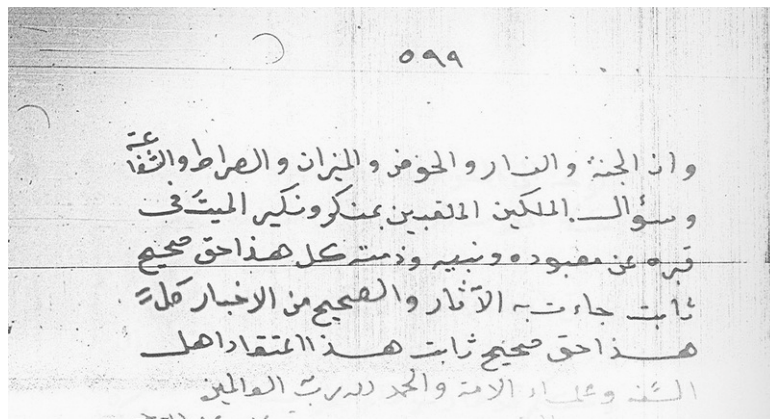 ٥٩٩
وان الجنة والنار والحوض والميزان والصراط والشفاعة
وسؤال الملكين الملقبين بمنكر ونكير الميت في
قبره عن معبوده ونبيه وذمته كل هذا حق صحيح
ثابت جاءت به الآثار والصحيح من الاخبار كل
هذا حق صحيح ثابت هذا اعتقاد اهل
السنه وعلماء الامة والحمد لله رب العالمين